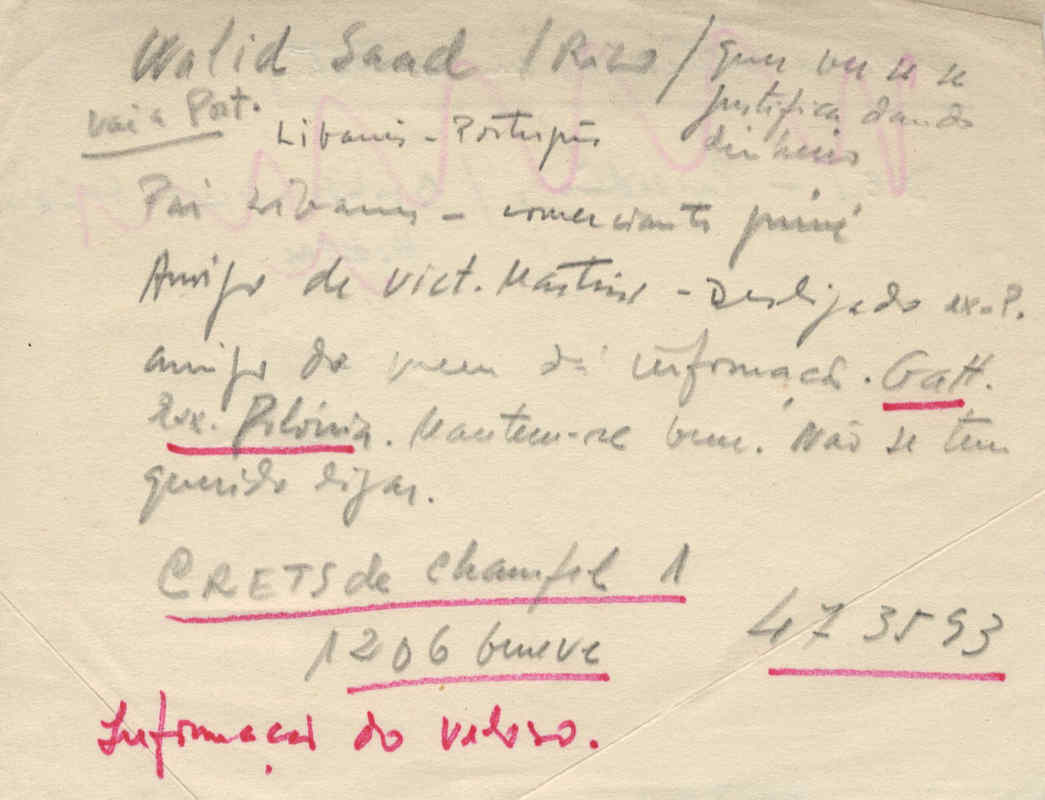 Walid Saad / Rico / Quer ver se se
justifica dando
dinheiro
vai a Port.
Libanês - Português
Pai Libanês - comerciante
Amigo de Vict. Martins - Desligado ex-P.
amigo do dá informação. Gatt.
Polónia. Mantem-se bem. Não se tem
querido ligar.
CRETS de Champel 1
1206 Geneve
47 35 93
Informação do Veloso.